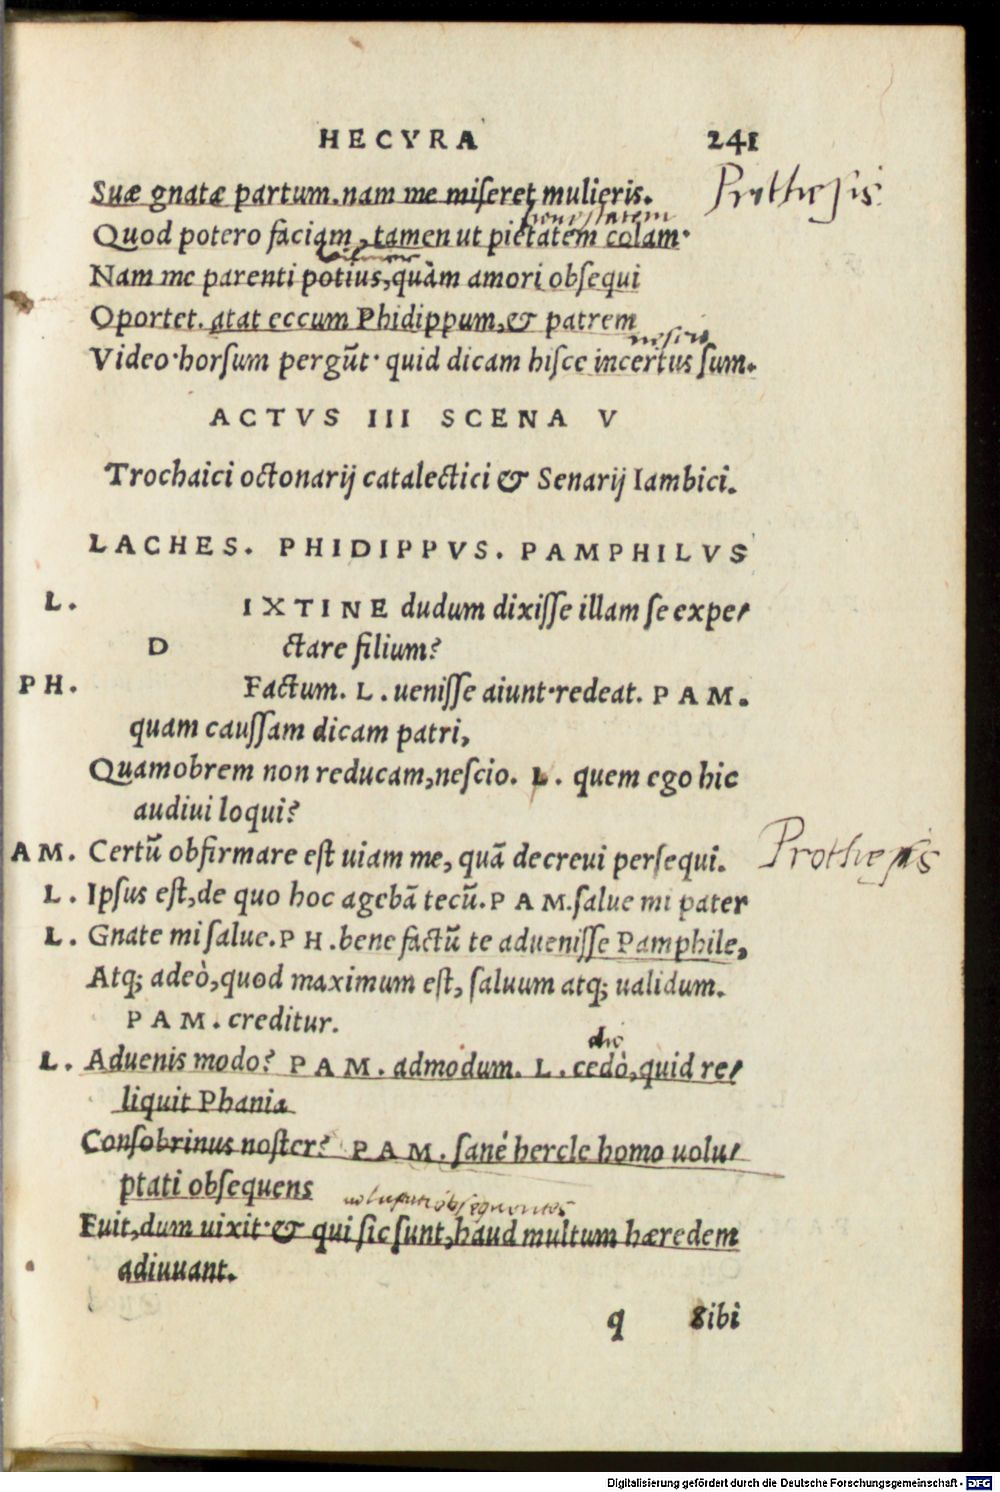 HECVRA 241
Suæ gnatæ partum.nam me miseret mulieris. Prothesis
Quod potero faciam, tamen ut pietatem colam·
Nam me parenti potius,quàm amori obsequi
Oportet. atat eccum Phidippum,& patrem
Video·horsum pergūt· quid dicam hisce incertus sum.
ACTVS III SCENA V
Trochaici octonarij catalectici & Senarij Iambici.
LACHES. PHIDIPPVS. PAMPHILVS
L. IXTINE dudum dixisse illam se expe-
D ctare filium?
PH. Factum. L. uenisse aiunt·redeat. PAM.
quam caussam dicam patri,
Quamobrem non reducam,nescio. L. quem ego hic
audiui loqui?
AM. Certū obfirmare est uiam me, quā decreui persequi. Prothesis
L. Ipsus est,de quo hoc agebā tecū.PAM.salue mi pater
L. Gnate mi salue.PH.bene factū te aduenisse Pamphile,
Atq; adeò,quod maximum est, saluum atq; ualidum.
PAM. creditur.
dic
L. Aduenis modo? PAM. admodum. L. cedò,quid re-
liquit Phania
Consobrinus noster? PAM. sanè hercle homo uolu-
ptati obsequens
uoluptati obsequentes
Fuit,dum uixit·& qui sic sunt,haud multum hæredem
adiuuant.
q Sibi
Digitalisierung gefördert durch die Deutsche Forschungsgemeinschaft - DFG